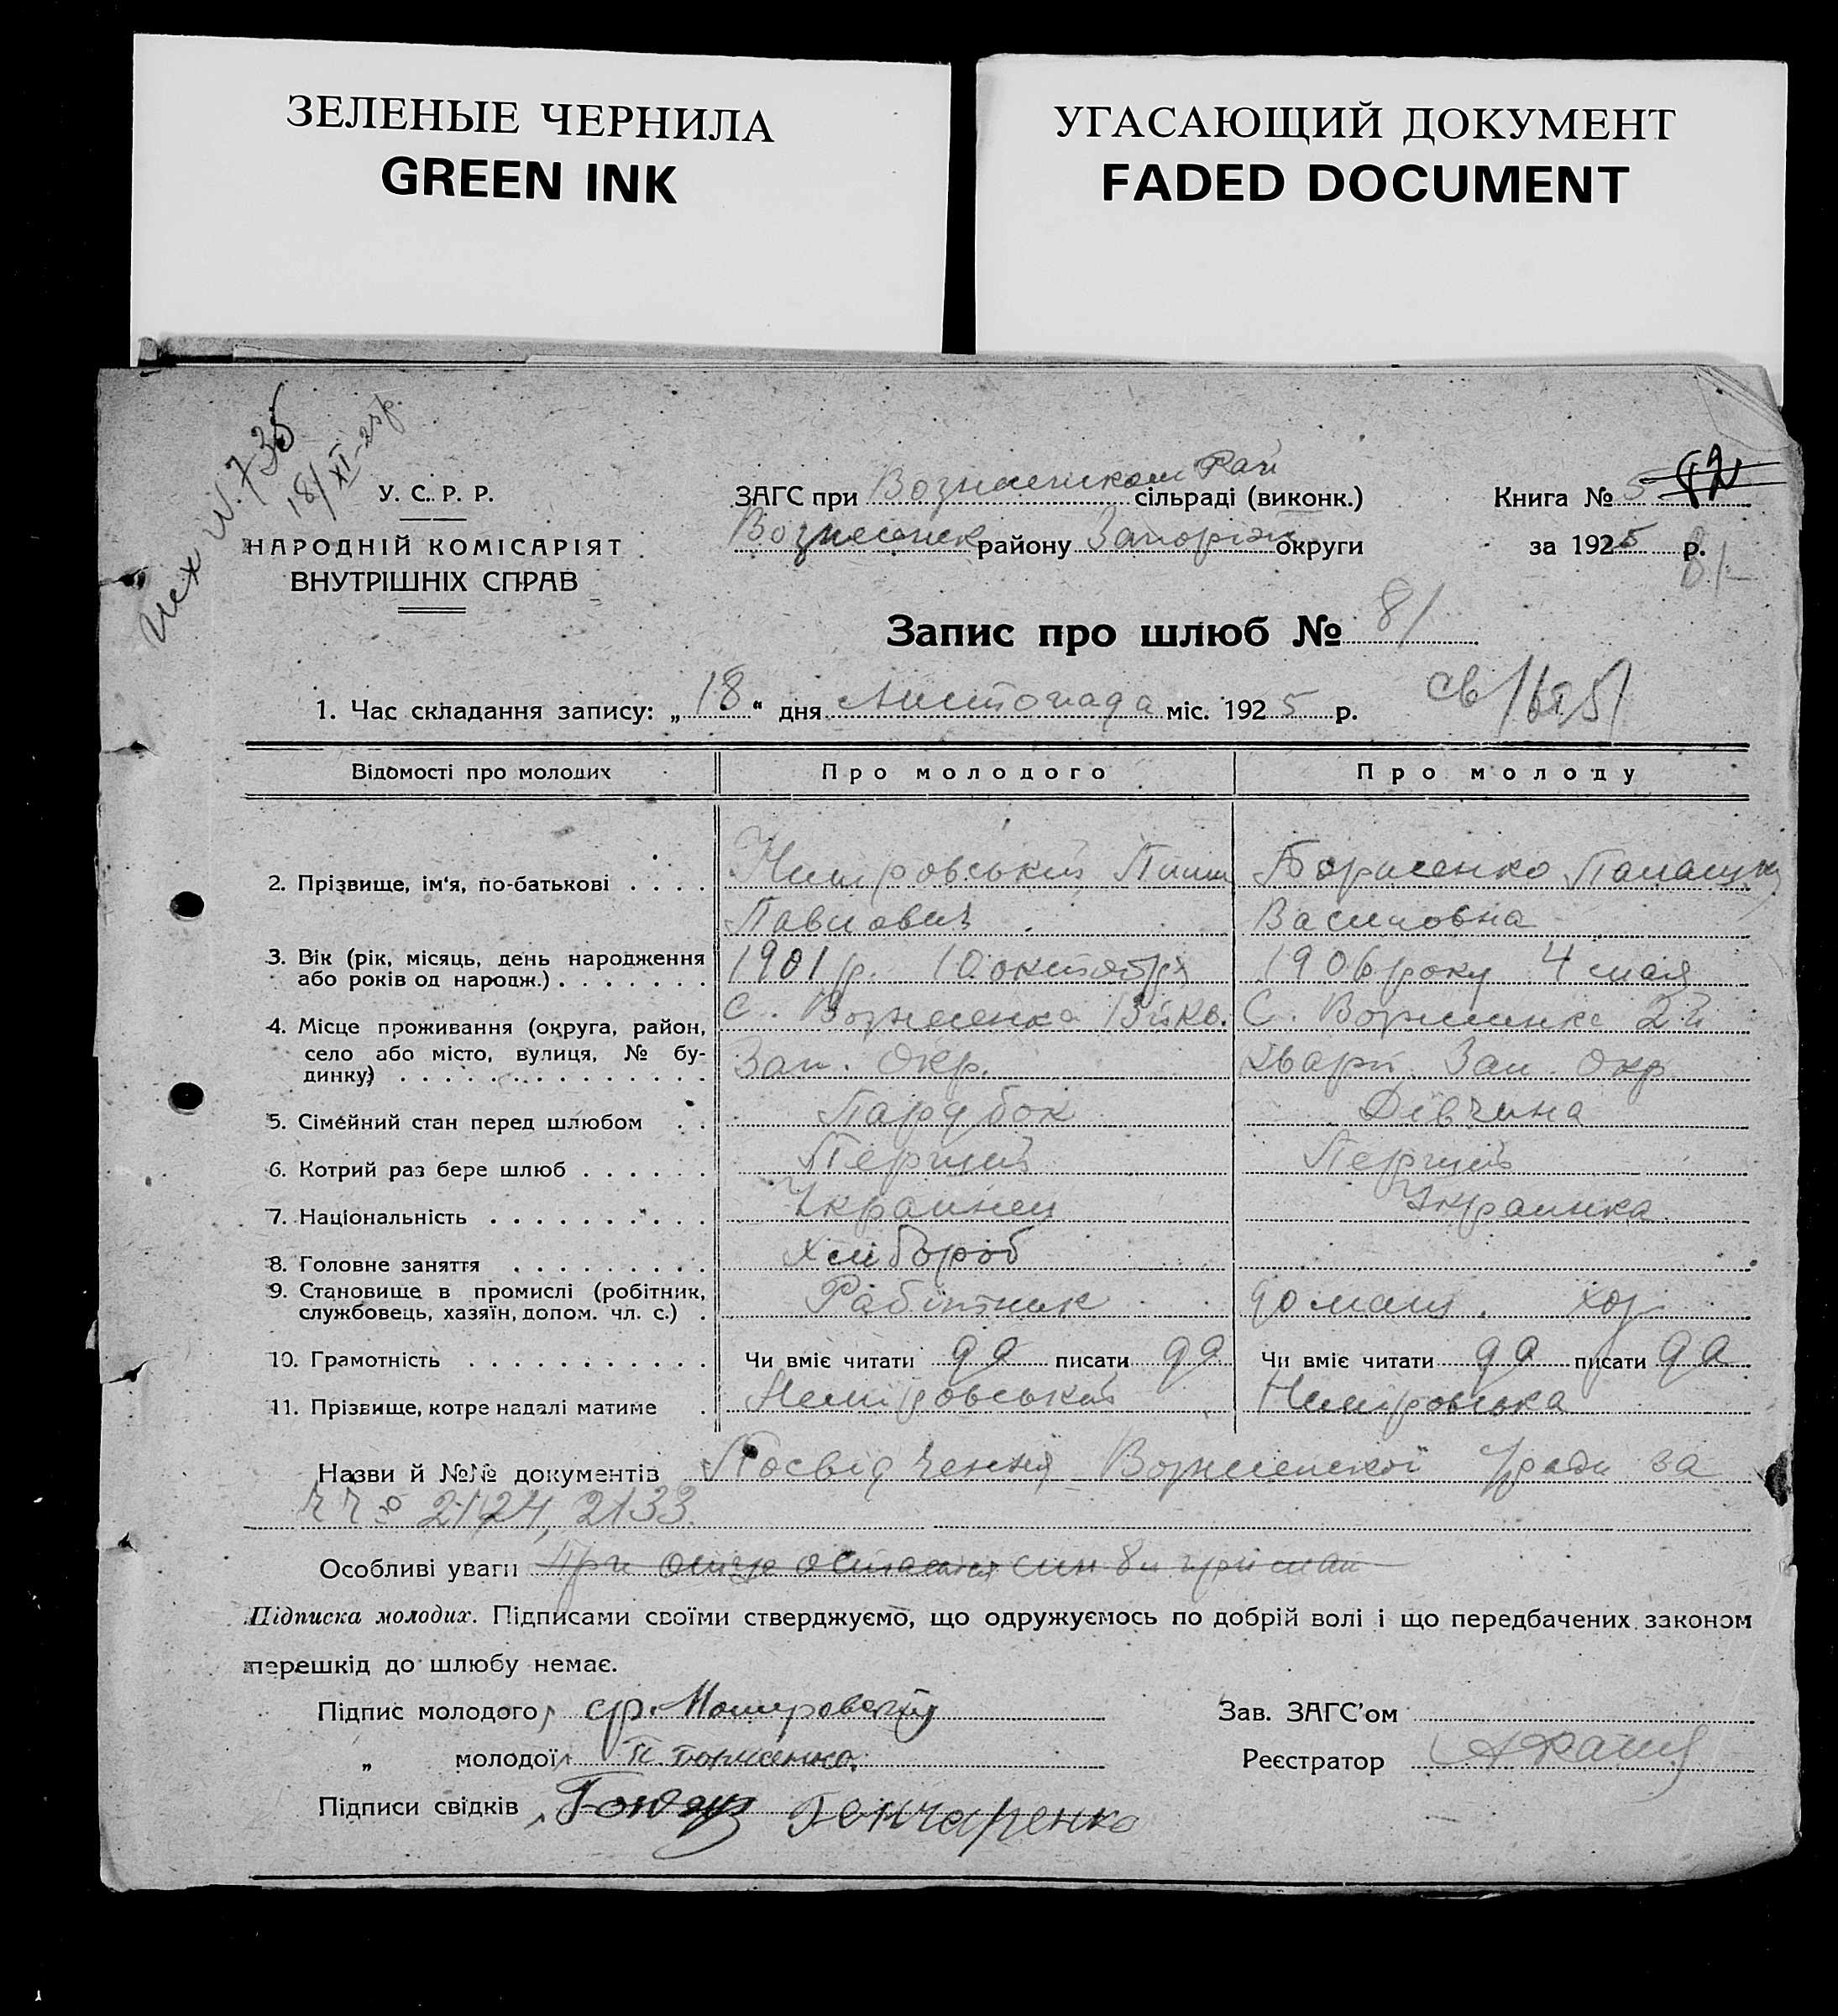 ЗЕЛЕНЫЕ ЧЕРНИЛА
GREEN INK
УГАСАЮЩИЙ ДОКУМЕНТ
FADED DOCUMENT
Исх №. 735
18/XI-25р.
У. С. Р. Р.
НАРОДНІЙ КОМІСАРІЯТ
ВНУТРІШНІХ СПРАВ
ЗАГС при Вознесенском Рай сільраді (виконк.)
Вознесенск району Запоріж округи
Книга № 5
за 1925 р.
Запис про шлюб № 81
1. Час складання запису: „18" дня Листопада міс. 1925 р.
Відомості про молодих Про молодого Про молоду
2. Прізвище, ім'я, по-батькові . . . . Борисенко
Павлович Василовна
3. Вік (рік, місяць, день народження
або років од народж.) . . . . . . . 1901 р. 10 октября 1906 року 4 мая
4. Місце проживання (округа, район,
село або місто, вулиця, № бу-
динку) . . . . . . . . . . . . . . . С. Вознесенка 13й кв. С. Вознесенка 2й
Зап. Окр. Кварт. Зап. Окр
5. Сімейний стан перед шлюбом . . Парубок Дівчина
6. Котрий раз бере шлюб . . . . . . Перший Перший
7. Національність . . . . . . . . . . Украинец Украинка
8. Головне заняття . . . . . . . . . Хлибороб
9. Становище в промислі (робітник,
службовець, хазяїн, допом. чл. с.) . Рабітник домаш. хоз
10. Грамотність . . . . . . . . . . . Чи вміє читати да писати да Чи вміє читати да писати да
11. Прізвище, котре надалі матиме . Немировський Немировська
Назви й №№ документів Посвідчення Вознесенскої ради за
№ 2124, 2133.
Особливі уваги При
Підписка молодих. Підписами своїми стверджуємо, що одружуємось по добрій волі і що передбачених законом
перешкід до шлюбу немає.
Підпис молодого
„ молодої П Борисенко
Підписи свідків Гончаренко
Зав. ЗАГС'ом
Реєстратор